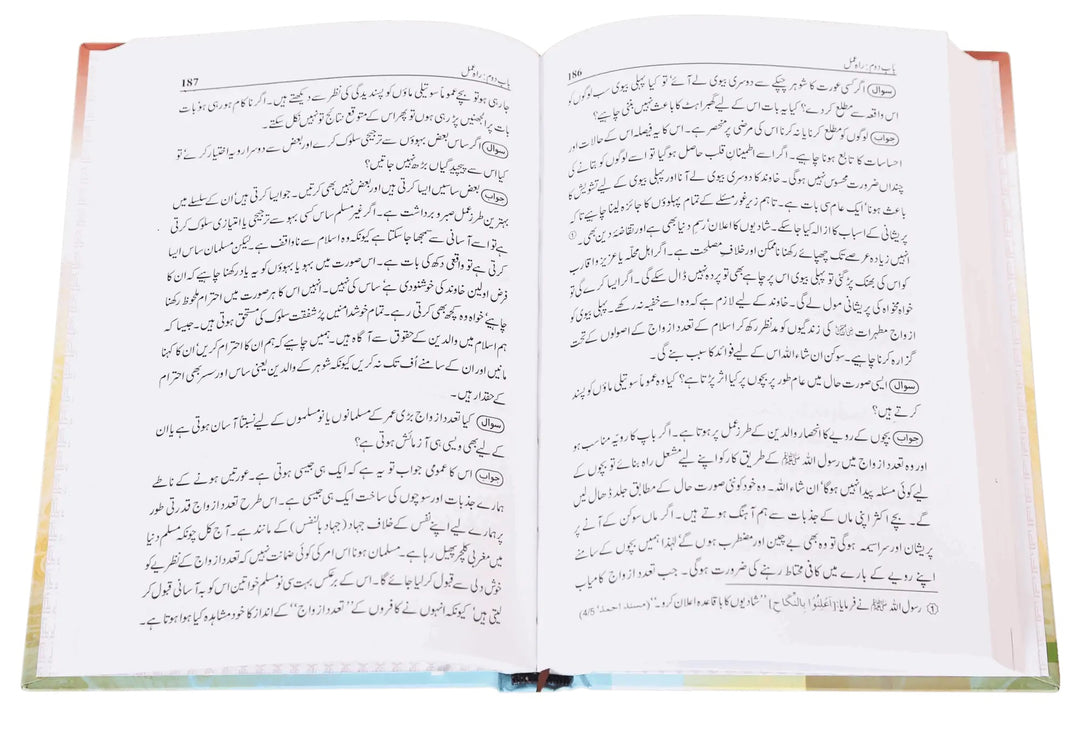 باب دوم: راہ عمل
186
سوال اگر کسی عورت کا شوہر چپکے سے دوسری بیوی لے آئے تو کیا پہلی بیوی سب لوگوں کو
اس واقعہ سے مطلع کر دے؟ کیا یہ بات اس کے لیے گھبراہٹ کا باعث نہیں بنتی چاہیے؟
جواب لوگوں کو مطلع کرنا یا نہ کرنا اس کی مرضی پر منحصر ہے۔ اس کا یہ فیصلہ اس کے حالات اور
احساسات کا تابع ہونا چاہیے۔ اگر اسے اطمینان قلب حاصل ہوگیا تو اسے لوگوں کو بتانے کی
چنداں ضرورت محسوس نہیں ہوگی۔ خاوند کا دوسری بیوی لے آنا اور پہلی بیوی کے لیے تشویش کا
باعث ہونا‘ ایک عام سی بات ہے۔ تاہم زیر غور مسئلے کے تمام پہلوؤں کا جائزہ لینا چاہیے تا کہ
پریشانی کے اسباب کا ازالہ کیا جاسکے۔ شادیوں کا اعلان‘ رسم دنیا بھی ہے اور تقاضۂ دین بھی۔ ①
انہیں زیادہ عرصے تک چھپائے رکھنا ناممکن اور خلاف مصلحت ہے۔ اگر اہل محلّہ یا عزیز و اقارب
کو اس کی بھنک پڑ گئی تو پہلی بیوی اس پر چاہے بھی تو پردہ نہیں ڈال سکے گی۔ اگر ایسا کرے گی تو
خواہ مخواہ کی پریشانی مول لے گی۔ خاوند کے لیے لازم ہے کہ وہ اسے خفیہ نہ رکھے۔ پہلی بیوی کو
ازواج مطہرات کی زندگیوں کو مدنظر رکھ کر اسلام کے تعدد ازواج کے اصولوں کے تحت
گزارہ کرنا چاہیے۔ سوکن ان شاء اللہ اس کے لیے فوائد کا سبب بنے گی۔
سوال ایسی صورت حال میں عام طور پر بچوں پر کیا اثر پڑتا ہے؟ کیا وہ عموماً سوتیلی ماؤں کو پسند
کرتے ہیں؟
جواب بچوں کے رویے کا انحصار والدین کے طرز عمل پر ہوتا ہے۔ اگر باپ کا رویہ مناسب ہو
اور وہ تعدد ازواج میں رسول اللہ ﷺ کے طریق کار کو اپنے لیے مشعل راہ بنائے تو بچوں کے
لیے کوئی مسئلہ پیدا نہیں ہوگا‘ ان شاء اللہ۔ وہ خود کو نئی صورت حال کے مطابق جلد ڈھال لیں
گے۔ بچے اکثر اپنی ماں کے جذبات سے ہم آہنگ ہوتے ہیں۔ اگر ماں سوکن کے آنے پر
پریشان اور سراسیمہ ہوگی تو وہ بھی بے چین اور مضطرب ہوں گے‘ لہٰذا ہمیں بچوں کے سامنے
اپنے رویے کے بارے میں کافی محتاط رہنے کی ضرورت ہوگی۔ جب تعدد ازواج کامیاب
① رسول اللہ ﷺ نے فرمایا: [أَعْلِنُوا بِالنِّكَاحِ] ’’شادیوں کا باقاعدہ اعلان کرو۔‘‘ (مسند احمد‘ 4/5)
باب دوم: راہ عمل
187
جا رہی ہو تو بچے عموماً سوتیلی ماؤں کو پسندیدگی کی نظر سے دیکھتے ہیں۔ اگر ناکام ہو رہی ہو‘ بات
بات پر الجھنیں پڑ رہی ہوں تو پھر اس کے متوقع نتائج تو نہیں نکل سکتے۔
سوال اگر ساس بعض بہوؤں سے ترجیحی سلوک کرے اور بعض سے دوسرا رویہ اختیار کرے‘ تو
کیا اس سے پیچیدگیاں بڑھ نہیں جاتیں؟
جواب بعض ساسیں ایسا کرتی ہیں اور بعض نہیں بھی کرتیں۔ جو ایسا کرتی ہیں‘ ان کے سلسلے میں
بہترین طرز عمل صبر و برداشت ہے۔ اگر غیر مسلم ساس کسی بہو سے ترجیحی یا امتیازی سلوک کرتی
ہے تو اسے آسانی سے سمجھا جا سکتا ہے کیونکہ وہ اسلام سے ناواقف ہے۔ لیکن مسلمان ساس ایسا
کرتی ہے تو واقعی دکھ کی بات ہے۔ اس صورت میں بہو یا بہوؤں کو یہ یاد رکھنا چاہیے کہ ان کا
فرض اولین خاوند کی خوشنودی ہے‘ ساس کی نہیں۔ انہیں اس کا ہر صورت میں احترام ملحوظ رکھنا
چاہیے‘ خواہ وہ کچھ بھی کرتی رہے۔ تمام خوشدامنیں پر شفقت سلوک کی مستحق ہوتی ہیں۔ جیسا کہ
ہم اسلام میں والدین کے حقوق سے آگاہ ہیں۔ ہمیں چاہیے کہ ہم ان کا احترام کریں‘ ان کا کہنا
مانیں اور ان کے سامنے اُف تک نہ کریں کیونکہ شوہر کے والدین یعنی ساس اور سسر بھی احترام
کے حقدار ہیں۔
سوال کیا تعدد ازواج بڑی عمر کے مسلمانوں یا نو مسلموں کے لیے نسبتاً آسان ہوتی ہے یا ان
کے لیے بھی ویسی ہی آزمائش ہوتی ہے؟
جواب اس کا عمومی جواب تو یہ ہے کہ ایک ہی جیسی ہوتی ہے۔ عورتیں ہونے کے ناطے
ہمارے جذبات اور سوچوں کی ساخت ایک ہی جیسی ہے۔ اس طرح تعدد ازواج قدرتی طور
پر ہمارے لیے اپنے نفس کے خلاف جہاد (جہاد بالنفس) کے مانند ہے۔ آج کل چونکہ مسلم دنیا
میں مغربی کلچر پھیل رہا ہے۔ مسلمان ہونا اس امر کی کوئی ضمانت نہیں کہ تعدد ازواج کے نظریے کو
خوش دلی سے قبول کر لیا جائے گا۔ اس کے برعکس بہت سی نو مسلم خواتین اس کو بہ آسانی قبول کر
لیتی ہیں‘ کیونکہ انہوں نے کافروں کے ’’تعدد ازواج‘‘ کے انداز کا خود مشاہدہ کیا ہوا ہوتا ہے۔